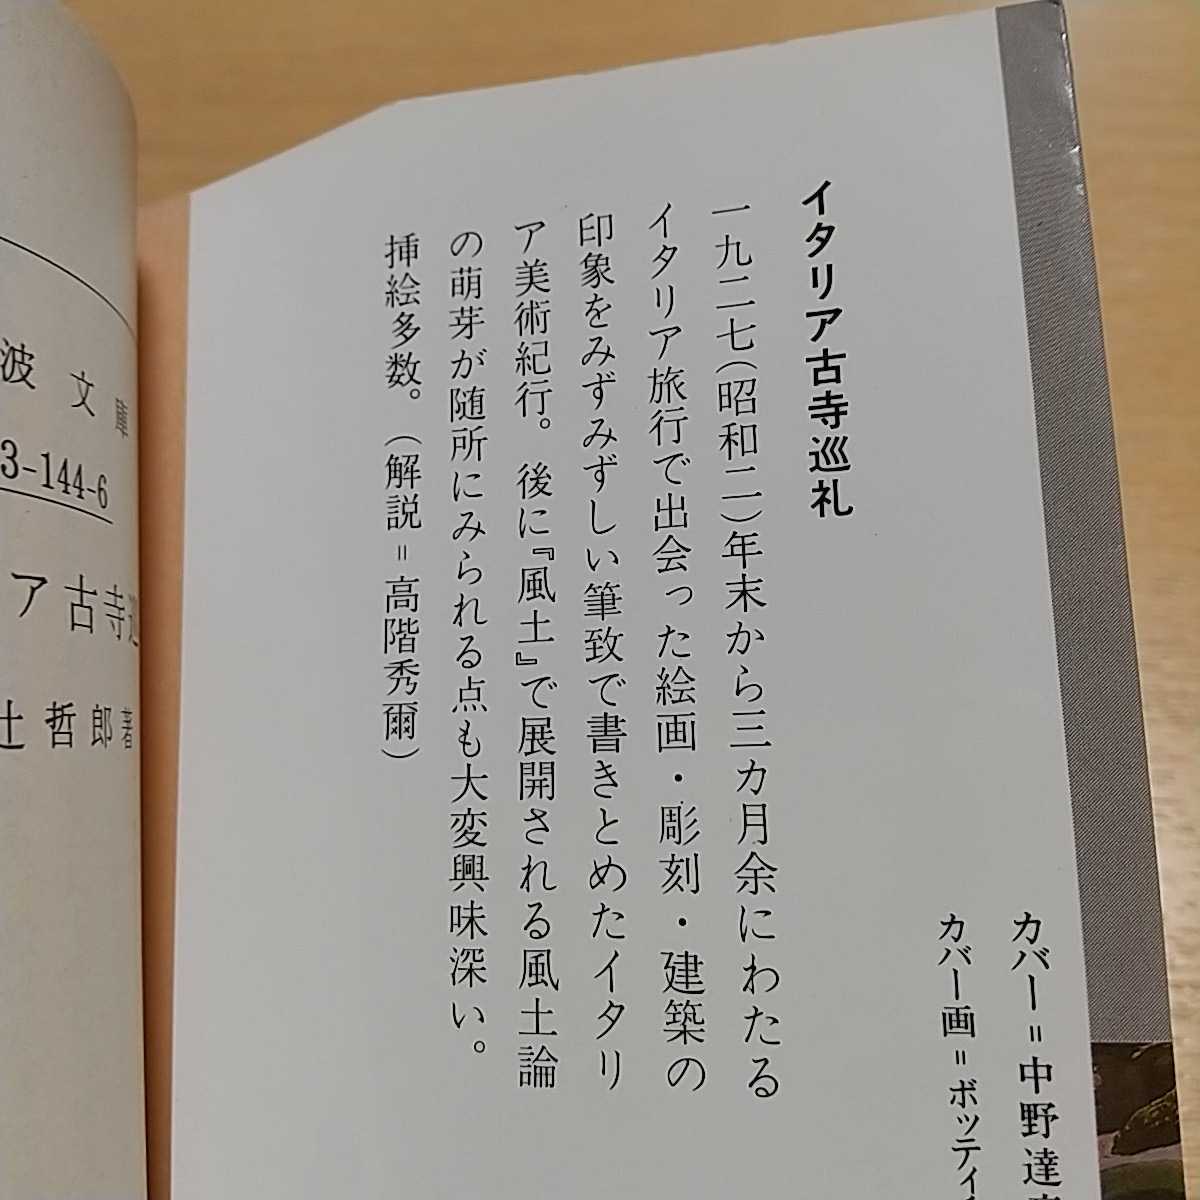 カバー＝中野達彦
カバー画＝ボッティ
イタリア古寺巡礼
一九二七(昭和二)年末から三カ月余にわたる
イタリア旅行で出会った絵画・彫刻・建築の
印象をみずみずしい筆致で書きとめたイタリ
ア美術紀行。後に『風土』で展開される風土論
の萌芽が随所にみられる点も大変興味深い。
挿絵多数。(解説＝高階秀爾)
波文庫
3-144-6
ア古寺巡
辻哲郎著